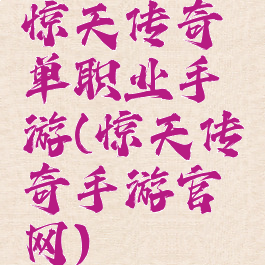 惊天传奇
单职业手
游(惊天传
奇手游官
网)